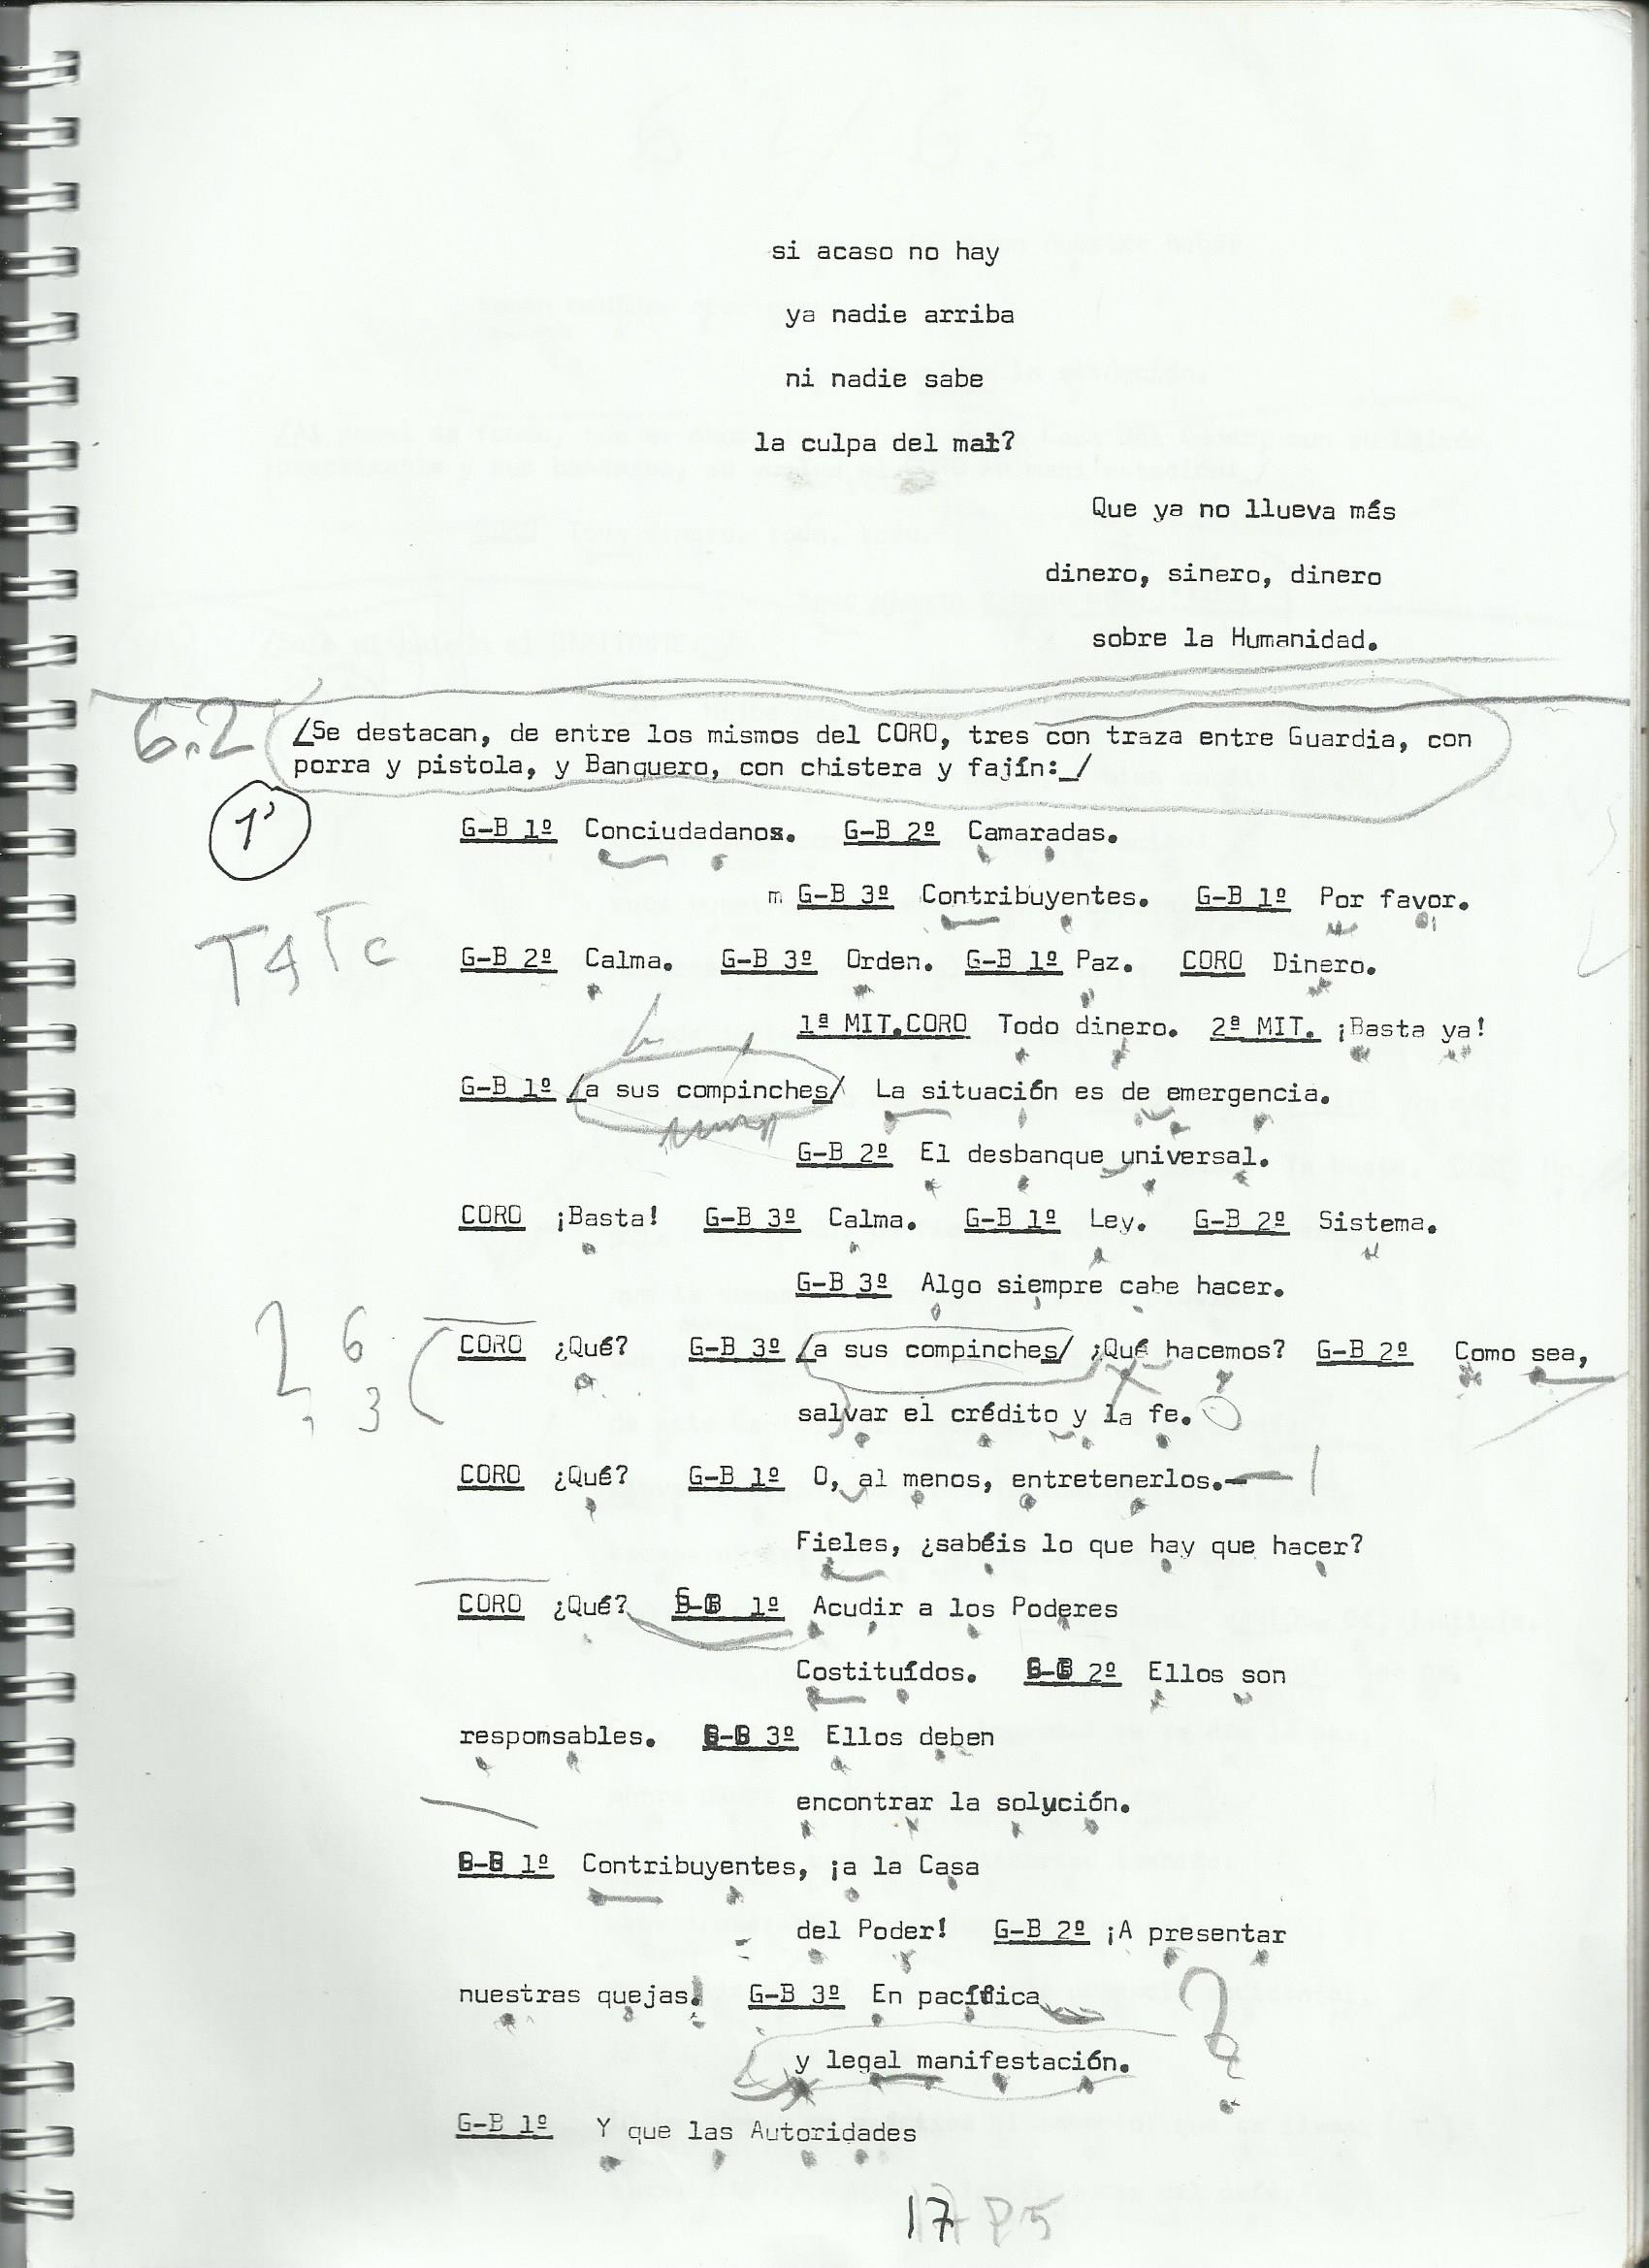 si acaso no hay
ya nadie arriba
ni nadie sabe
la culpa del mal?
Que ya no llueva más
dinero, sinero, dinero
sobre la Humanidad.
6.2 /Se destacan, de entre los mismos del CORO, tres con traza entre Guardia, con
porra y pistola, y Banquero, con chistera y fajín:_/
1'
G-B 1º Conciudadanos. G-B 2º Camaradas.
m G-B 3º Contribuyentes. G-B 1º Por favor.
G-B 2º Calma. G-B 3º Orden. G-B 1º Paz. CORO Dinero.
1ª MIT.CORO Todo dinero. 2ª MIT. ¡Basta ya!
G-B 1º /a sus compinches/ La situación es de emergencia.
G-B 2º El desbanque universal.
CORO ¡Basta! G-B 3º Calma. G-B 1º Ley. G-B 2º Sistema.
G-B 3º Algo siempre cabe hacer.
CORO ¿Qué? G-B 3º /a sus compinches/ ¿Qué hacemos? G-B 2º Como sea,
salvar el crédito y la fe.
CORO ¿Qué? G-B 1º O, al menos, entretenerlos.—
Fieles, ¿sabéis lo que hay que hacer?
CORO ¿Qué? G-B 1º Acudir a los Poderes
Costituídos. G-B 2º Ellos son
respomsables. G-B 3º Ellos deben
encontrar la solución.
G-B 1º Contribuyentes, ¡a la Casa
del Poder! G-B 2º ¡A presentar
nuestras quejas! G-B 3º En pacífica
y legal manifestación.
G-B 1º Y que las Autoridades
17 P5